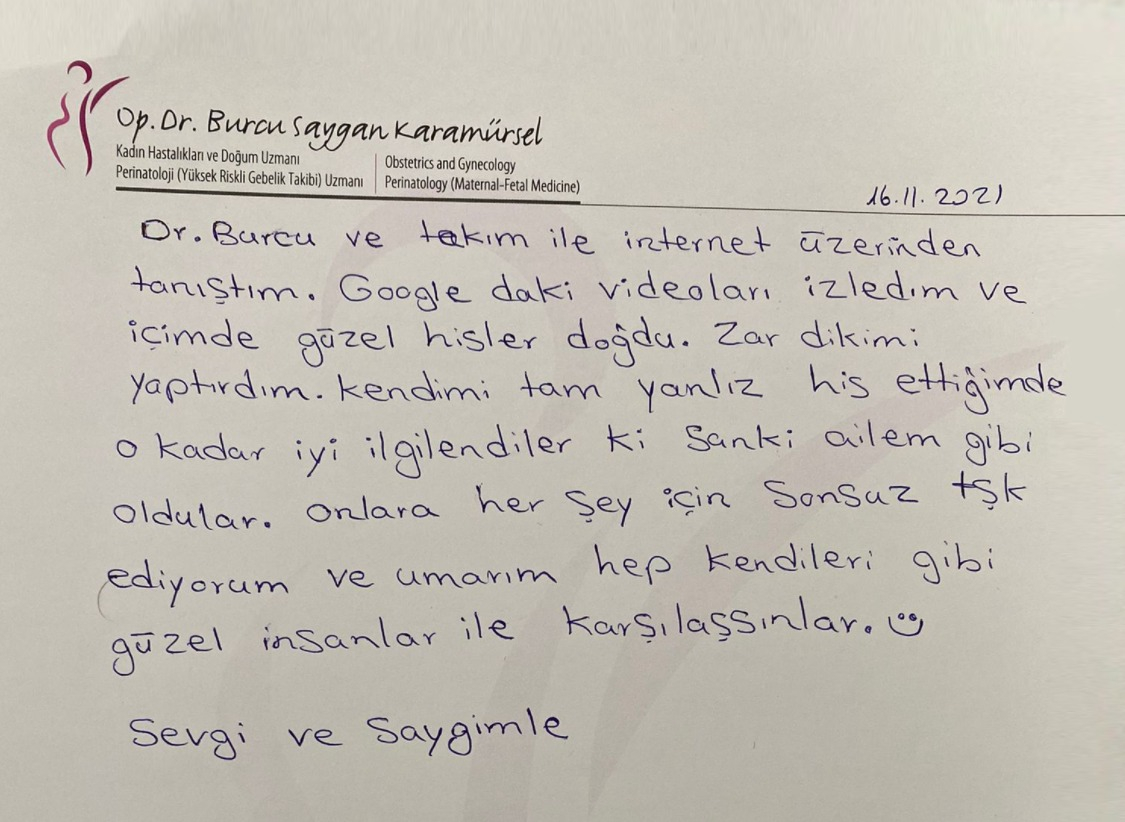 Op. Dr. Burcu Saygan Karamürsel
Kadın Hastalıkları ve Doğum Uzmanı
Perinatoloji (Yüksek Riskli Gebelik Takibi) Uzmanı
Obstetrics and Gynecology
Perinatology (Maternal-Fetal Medicine)
16.11.2021
Dr. Burcu ve takım ile internet üzerinden
tanıştım. Google daki videoları izledım ve
içimde güzel hisler doğdu. Zar dikimi
yaptırdım. kendimi tam yanlız his ettiğimde
o kadar iyi ilgilendiler ki sanki ailem gibi
oldular. onlara her şey için sonsuz tşk
ediyorum ve umarım hep kendileri gibi
güzel insanlar ile karşılaşsınlar.
Sevgi ve Saygimle